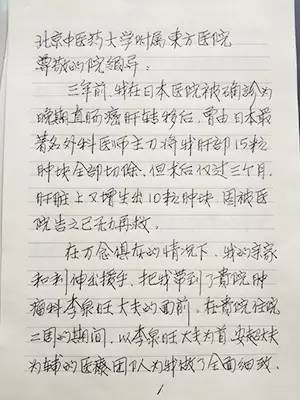 北京中医药大学附属东方医院
尊敬的院领导:
三年前,我在日本医院被确诊为
晚期直肠癌肝转移后,曾由日本最
著名外科医师主刀将我肝部15粒
肿块全部切除,但术后仅过三个月,
肝脏上又增生出10粒肿块,因被医
院告之已无力再救。
在万念俱灰的情况下,我的亲家
和利伸出援手,把我带到了贵院肿
瘤科李泉旺大夫的面前,在贵院住院
二周的期间,以李泉旺大夫为首,安超大夫
为辅的医疗团队人为我做了全面细致、
1